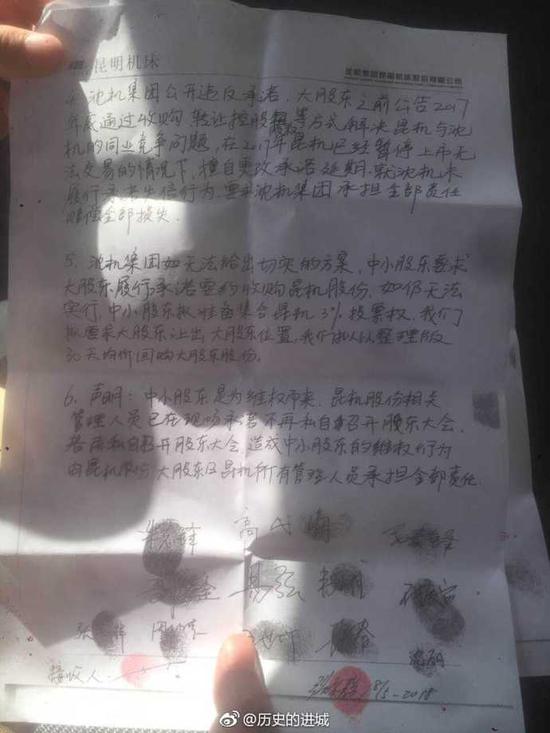 昆明机床
沈机集团昆明机床股份有限公司
4. 沈机集团公开违反承诺，大股东之前公告2017
年底通过收购 转让控股权等方式解决昆机与沈
机的同业竞争问题，在2017年昆机已经暂停上市无
法交易的情况下，擅自更改承诺延期，就沈机未
履行承诺失信行为，要求沈机集团承担全部责任
赔偿全部损失.
5、沈机集团如无法给出切实的方案，中小股东要求
大股东履行承诺要约收购昆机股份，如仍无法
实行，中小股东拟准备集合昆机3%投票权，我们
拟要求大股东让出大股东位置，我们拟以整理版
30天均价回购大股东股份.
6、声明：中小股东是为维权而来，昆机股份相关
管理人员已在现场承诺不再私自召开股东大会，
若再私自召开股东大会，造成中小股东的维权行为
由昆机股份大股东及昆机所有管理人员承担全部责任.
接收人：
18/5-2018
@历史的进城